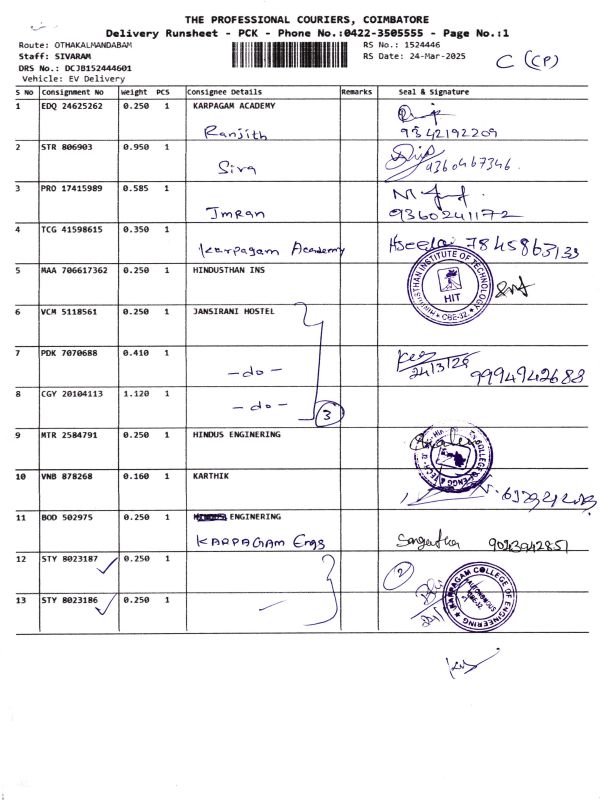 THE PROFESSIONAL COURIERS, COIMBATORE
Delivery Runsheet - PCK - Phone No.:0422-3505555 - Page No.:1
Route: OTHAKALMANDABAM RS No.: 1524446
Staff: SIVARAM RS Date: 24-Mar-2025
C (CP)
DRS No.: DCJB152444601
Vehicle: EV Delivery
S No Consignment No Weight PCS Consignee Details Remarks Seal & Signature
1 EDQ 24625262 0.250 1 KARPAGAM ACADEMY
Ranjith 9342192209
2 STR 806903 0.950 1
Siva 9360467346
3 PRO 17415989 0.585 1
Imran 9360241172
4 TCG 41598615 0.350 1
Karpagam Academy 7845863133
5 MAA 706617362 0.250 1 HINDUSTHAN INS
HINDUSTHAN INSTITUTE OF TECHNOLOGY HIT CBE-32
6 VCM 5118561 0.250 1 JANSIRANI HOSTEL
7 PDK 7070688 0.410 1
-do- 24/3/25 9994942688
8 CGY 20104113 1.120 1
-do- 3
9 MTR 2584791 0.250 1 HINDUS ENGINERING
10 VNB 878268 0.160 1 KARTHIK
11 BOD 502975 0.250 1 ENGINERING
KARPAGAM Engg Sangeetha
12 STY 8023187 0.250 1
2
13 STY 8023186 0.250 1
KARPAGAM COLLEGE OF ENGINEERING AUTONOMOUS CBE-32